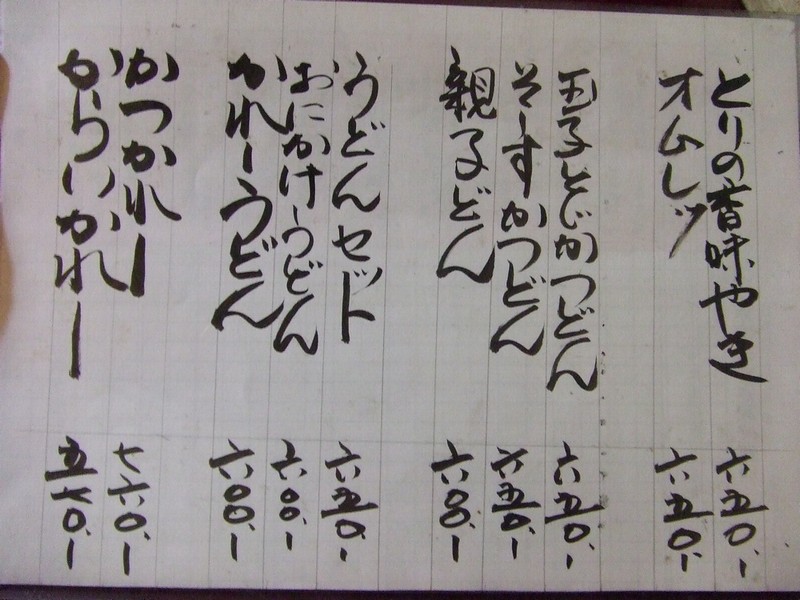 とりの香味やき 六五〇.-
オムレツ 六五〇.-
玉子とじかつどん 六五〇.-
そーすかつどん 六五〇.-
親子どん 六〇〇.-
うどんセット 六五〇.-
おにかけうどん 六〇〇.-
かれーうどん 六〇〇.-
かつかれー 七六〇.-
からいかれー 五七〇.-